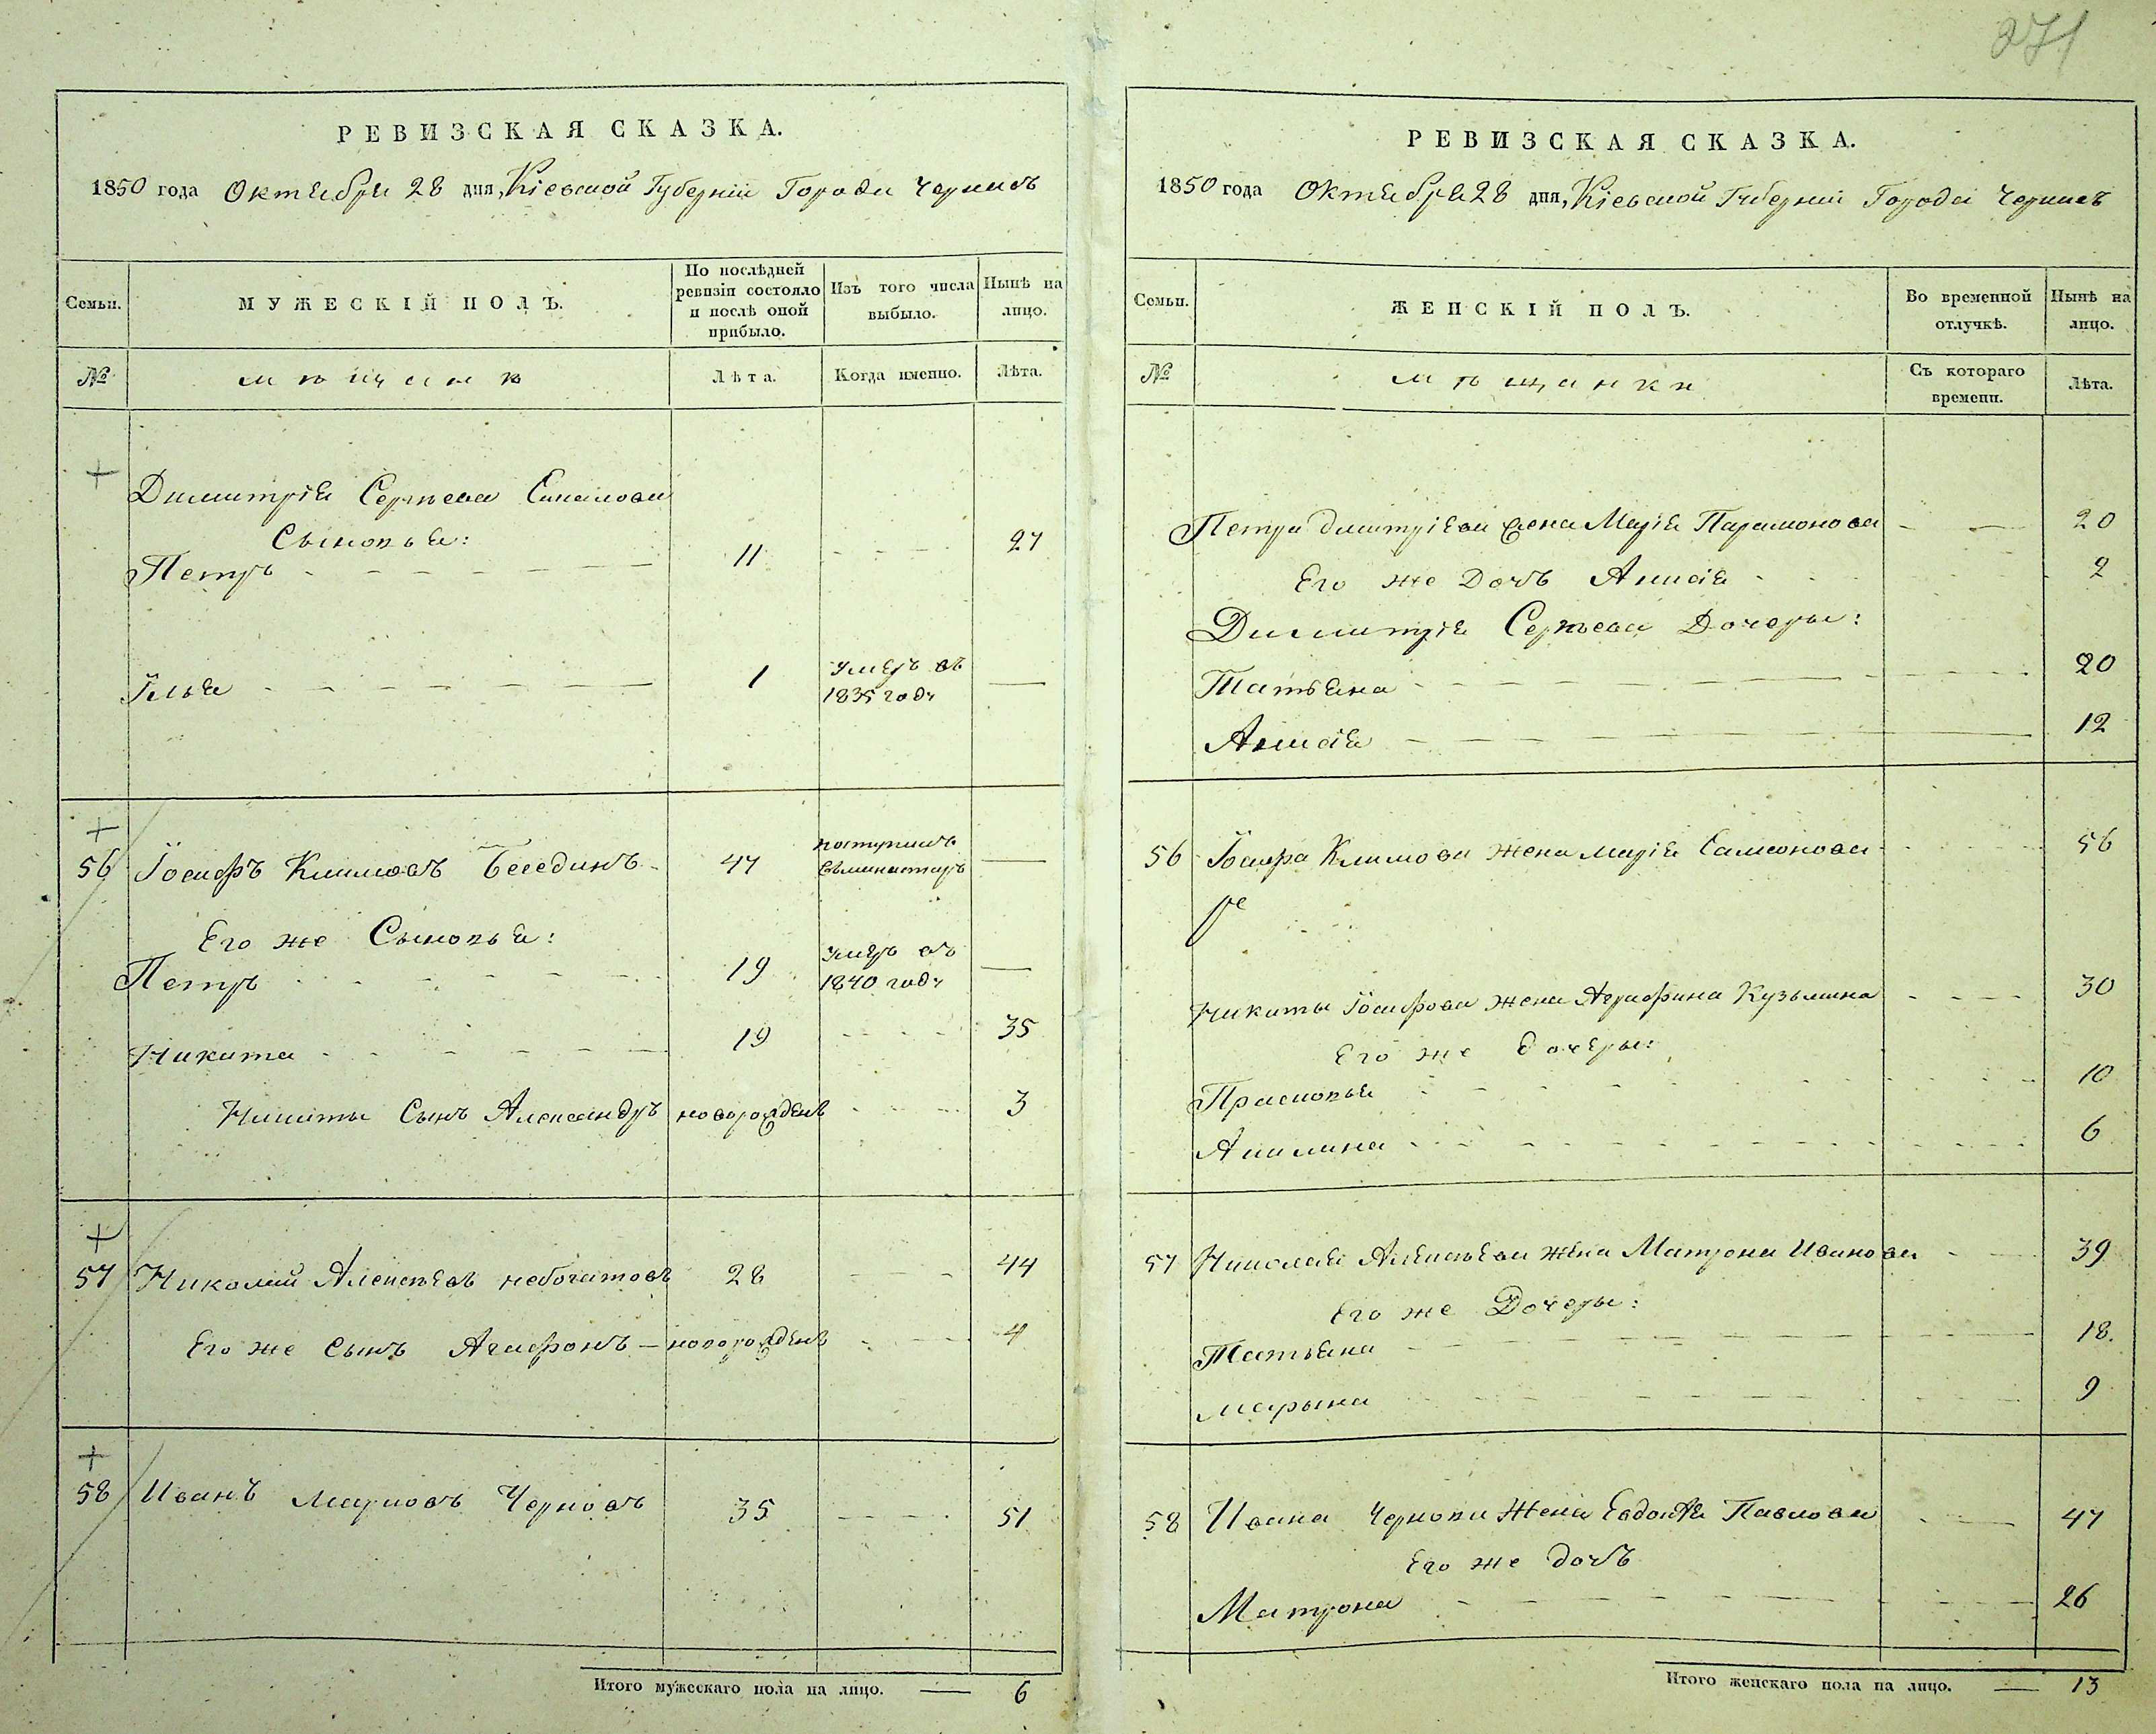 271
РЕВИЗСКАЯ СКАЗКА.
1850 года Октября 28 дня, Кіевской Губерніи Города
Семьи.
МУЖЕСКІЙ ПОЛЪ.
По послѣдней ревизіи состояло и послѣ оной прибыло.
Изъ того числа выбыло.
Нынѣ на лицо.
№
мѣщане
Лѣта.
Когда именно.
Лѣта.
Димитрія Сергѣева
Сыновья:
Петръ 11 27
Ілья 1 Умеръ въ 1835 году
56 Іосифъ Климовъ Бесединъ 47 поступилъ
Его же Сыновья:
Петръ 19 Умеръ въ 1840 году
Никита 19 35
Никиты Сынъ Александръ новорожденъ 3
57 Николай Алексѣевъ небогатовъ 28 44
Его же Сынъ Агафонъ — новорожденъ 4
58 Иванъ Марковъ Черновъ 35 51
Итого мужескаго пола на лицо. — 6
РЕВИЗСКАЯ СКАЗКА.
1850 года Октября 28 дня, Кіевской Губерніи Города
Семьи.
ЖЕНСКІЙ ПОЛЪ.
Во временной отлучкѣ.
Нынѣ на лицо.
№
мѣщанки
Съ котораго времени.
Лѣта.
Петра Дмитріева жена Марія Парамонова 20
Его же Дочь 2
Димитрія Сергѣева Дочери:
Татьяна 20
12
56 Іосифа Климова жена Марія Самсонова 56
Никиты Іосифова жена Агрифина Кузьмина 30
Его же дочеры:
Прасковья 10
Акилина 6
57 Николая Алексѣева жена Матрона Иванова 39
Его же Дочеры:
Татьяна 18.
Марына 9
58 Ивана Чернова Жена Евдокія Павлова 47
Его же дочь
Матрона 26
Итого женскаго пола на лицо. — 13